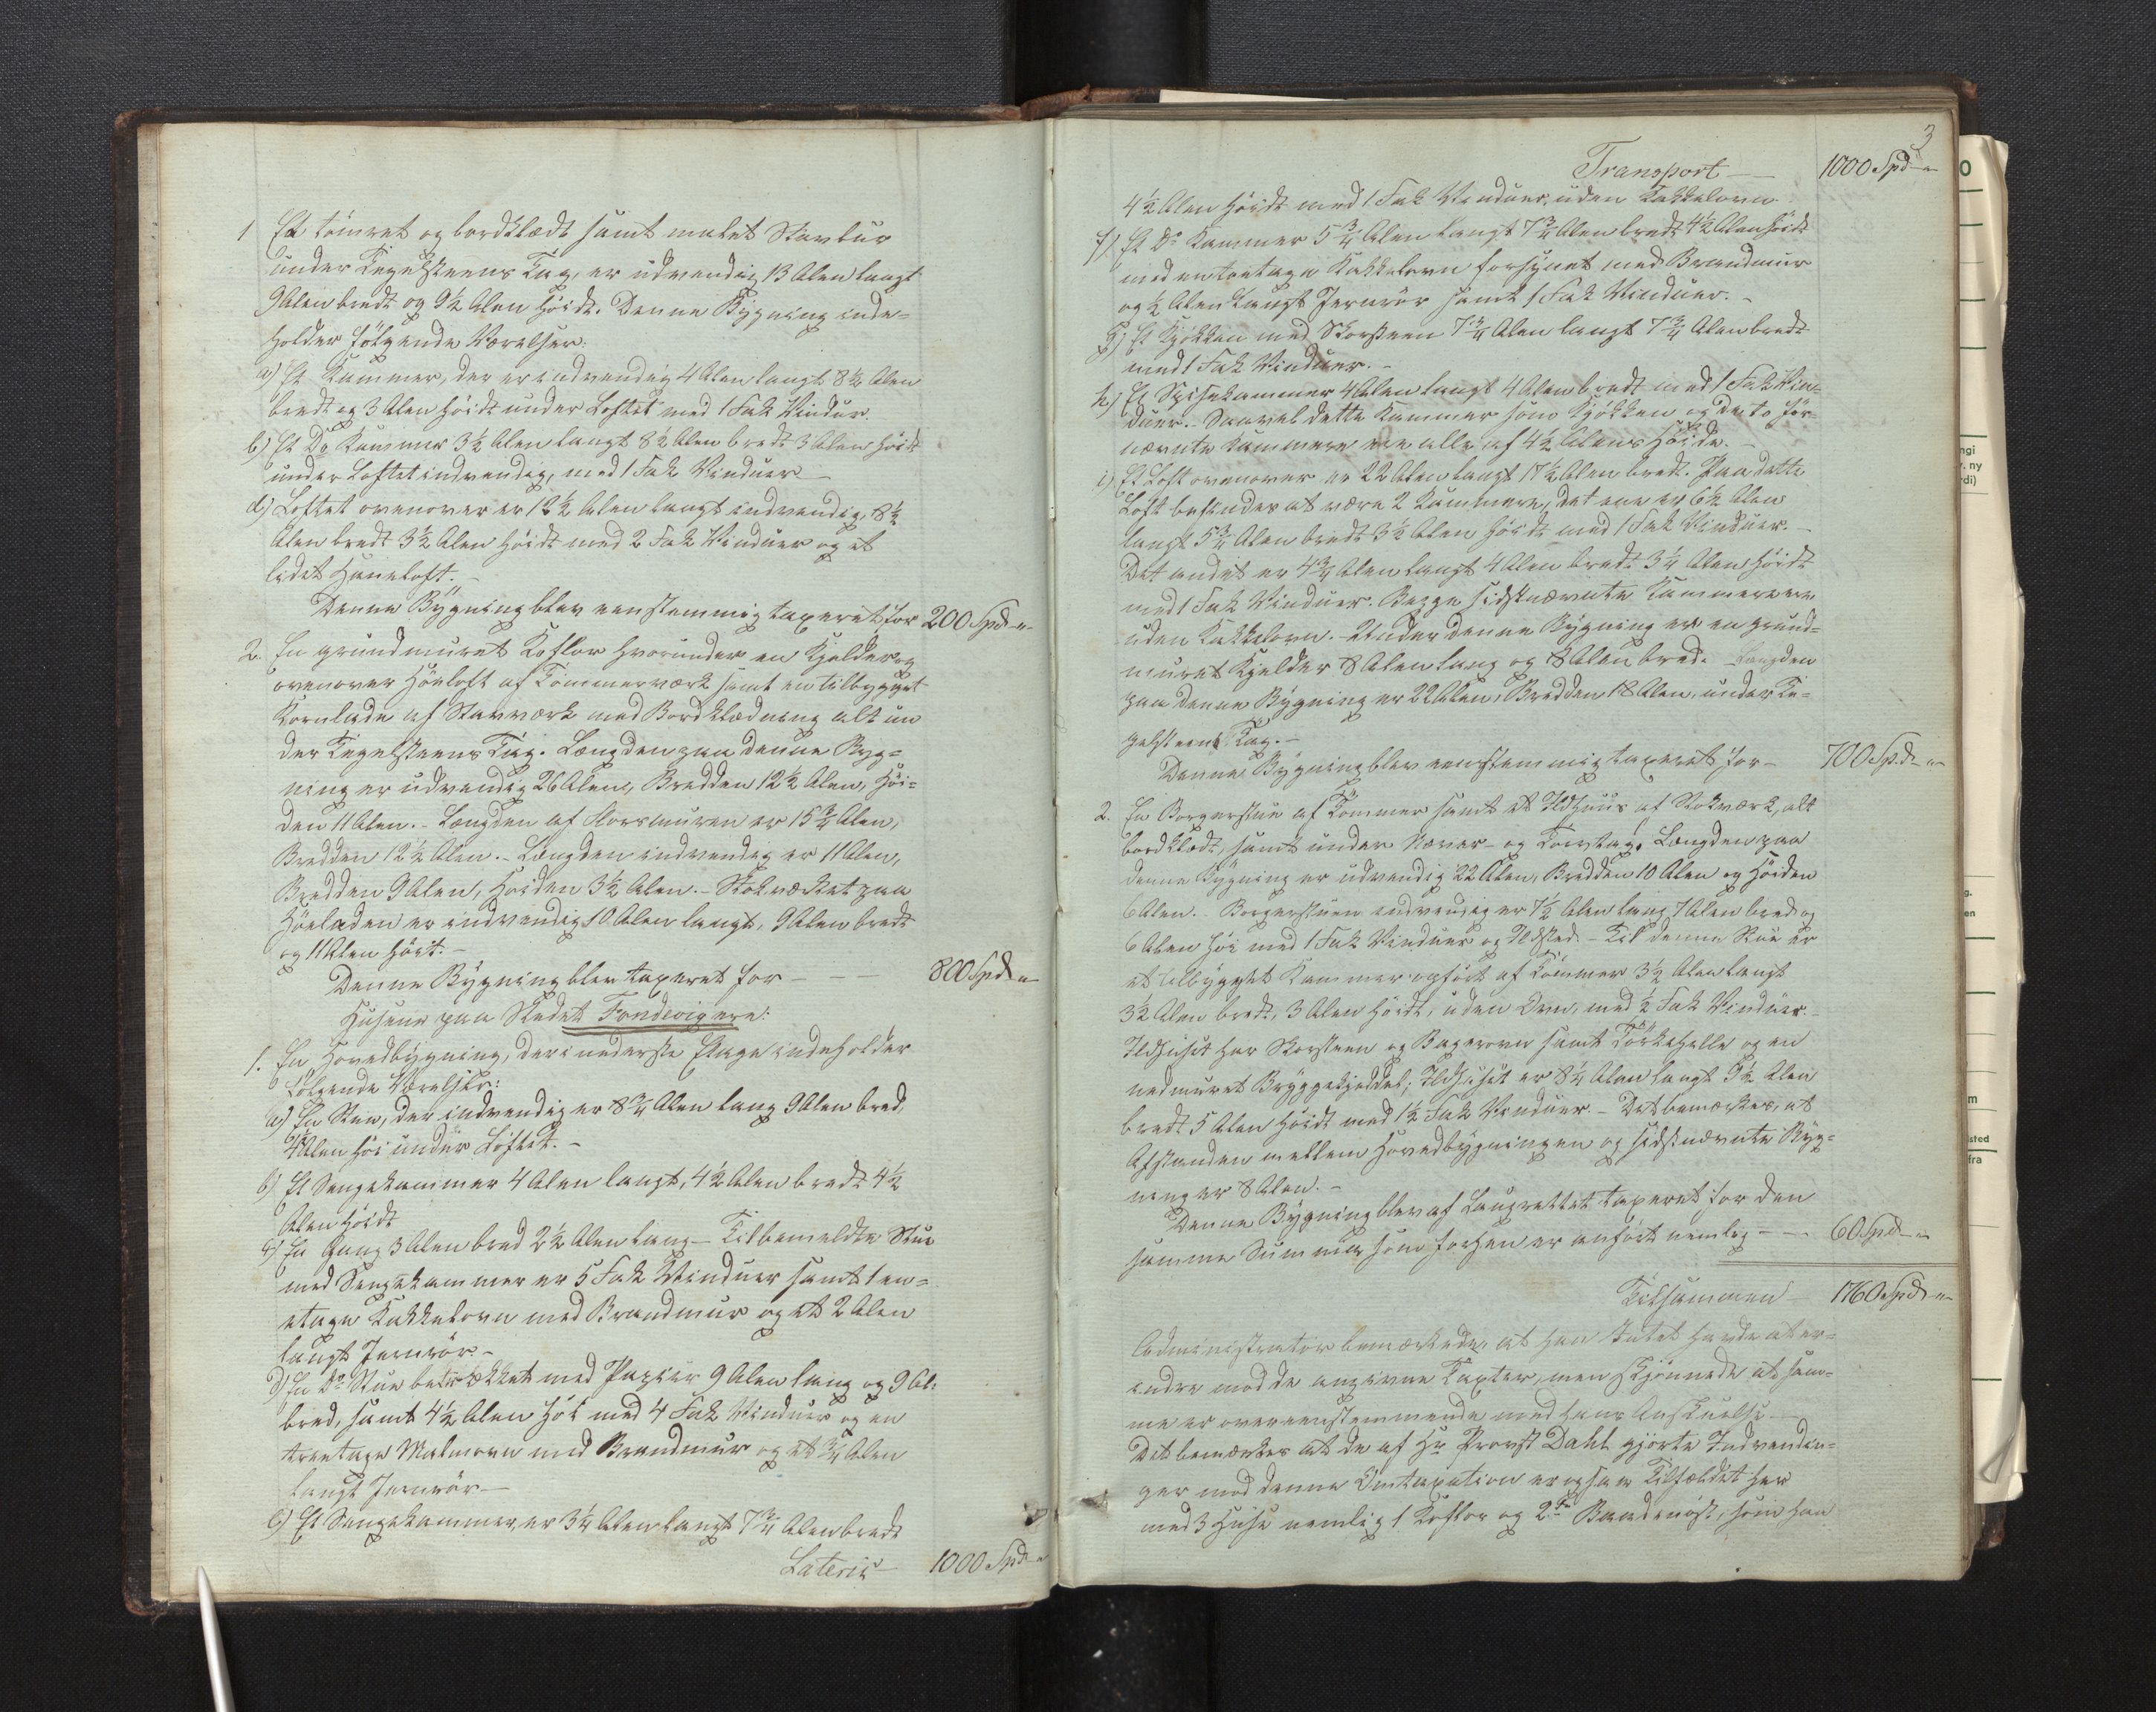 1 Et tömret og bordklædt samt malet Stavbur
under Tegelsteens Tag, er udvendig 13 Alen langt
9 Alen bredt og 9½ Alen Höidt. Denne Bygning inde=
holder følgende Værelser:
a) Et Kammer, der er indvendig 4 Alen langt 8½ Alen
bredt og 3 Alen höidt under Loftet med 1 Fak Vinduer.
b) Et Do Kammer 3½ Alen langt 8½ Alen bredt 3 Alen höidt
under Loftet indvendig, med 1 Fak Vinduer
d) Loftet ovenover er 12½ Alen langt indvendig, 8½
Alen bredt 3½ Alen Höidt med 2 Fak Vinduer og et
lidet Haneloft.-
Denne Bygning blev eenstemmig taxeret for 200 Spd-"-
2. En grundmuret Koflor hvorunder en Kjelder og
ovenover Höeloft af Tömmerværk samt en tilbygget
Kornlade af Stavværk med Bordklædning alt un
der Tegelsteens Tag. Længden paa denne Byg=
ning er udvendig 26 Alen, Bredden 12½ Alen, Höi=
den 11 Alen.- Længden af Florsmuren er 15¾ Alen,
Bredden 12½ Alen.- Længden indvendig er 11 Alen,
Bredden 9 Alen, Höiden 3½ Alen.- Stokværket paa
Höeladen er indvendig 10 Alen langt, 9 Alen bredt
og 11 Alen höit.-
Denne Bygning blev taxeret for - - 800 Spd-"-
Husene paa Stedet Tondevig ere:
1. En Hovedbygning, der i nederste Etage indeholder
følgende Værelser:
a) En Stue, der indvendig er 8¾ Alen lang 9 Alen bred,
4½ Alen höi under Loftet.-
b) Et Sengekammer 4 Alen langt, 4½ Alen bredt 4½
Alen höidt
c) En Gang 3 Alen bred 2½ Alen lang - Til bemeldte Stue
med Sengekammer er 5 Fak Vinduer samt 1 en=
etage Kakkelovn med Brandmur og et 2 Alen
langt Jernrör.-
d) En Do Stue betrækket med Papiir 9 Alen lang og 9 Al:
bred, samt 4½ Alen höi med 4 Fak Vinduer og en
treetage Malmovn med Brandmur og et ¾ Alen
langt Jernrör-
e) Et Sengekammer, er 3¼ Alen langt 7¾ Alen bredt
Lateris - 1000 Spd-"
3
Transport - 1000 Spd-"-
4½ Alen höidt med 1 Fak Vinduer, uden Kakkelovn
f) Et Do Kammer 5¾ Alen langt 7¾ Alen bredt 4½ Alen höidt
med en toetage Kakkelovn forsynet med Brandmur
og ½ Alen langt Jernrör samt 1 Fak Vinduer.-
g) Et Kjökken med Skorsteen 7¾ Alen langt 7¾ Alen bredt
med 1 Fak Vinduer.-
h) Et Spisekammer 4 Alen langt 4 Alen bredt med 1 Fak Vin=
duer.- Saavel dette Kammer som Kjökken og de to för=
nævnte Kammere ere alle af 4½ Alens Höide.-
i) Et Loft ovenover er 22 Alen langt 17½ Alen bredt. Paa dette
Loft befindes at være 2 Kammere, det ene er 6½ Alen
langt 5¾ Alen bredt 3½ Alen höidt med 1 Fak Vinduer.-
Det andet er 4¾ Alen langt 4 Alen bredt 3¼ Alen höidt
med 1 Fak Vinduer. Begge sidstnævnte Kammere ere
uden Kakkelovn.- Under denne Bygning er en grund=
muret Kjelder 8 Alen lang og 8 Alen bred. Længden
paa denne Bygning er 22 Alen, Bredden 18 Alen, under Te=
gelsteens Tag.-
Denne Bygning blev eenstemmig taxeret for - 700 Spd-"-
2. En Borgerstue af Tömmer samt et Ildhuus af Stokværk, alt
bordklædt, samt under Næver- og Torvtag. Længden paa
denne Bygning er udvendig 22 Alen, Bredden 10 Alen og Höiden
6 Alen.- Borgerstuen indvendig er 7½ Alen lang 7 Alen bred og
6 Alen höi med 1 Fak Vinduer og Ildsted.- Til denne Stue er
et tilbygget Kammer opfört af Tömmer 3½ Alen langt
3½ Alen bredt, 3 Alen höidt, uden Ovn, med ½ Fak Vinduer.-
Ildhuset har Skorsteen og Bagerovn samt Törkehelle og en
nedmuret Bryggekjeddel; Ildhuset er 8¼ Alen langt 9½ Alen
bredt 5 Alen höidt med 1½ Fak Vinduer.- Det bemærkes, at
Afstanden mellem Hovedbygningen og sidstnævnte Byg=
ning er 8 Alen.-
Denne Bygning blev af Laugrettet taxeret for den
samme Summa som forhen er anfört nemlig - - 60 Spd-"-
Tilsammen - 1760 Spd-"-
Administrator bemærkede, at han Intet havde at er=
indre mod de angivne Taxter, men skjönnede at sam=
me er overeenstemmende med hans Anskuelse-
Det bemærkes at de af Hr Provst Dahl gjorte Indvendin=
ger mod denne Omtaxation er ogsaa Tilfældet her
med 3 Huse nemlig 1 Koflor og 2de Baadnöst, som han